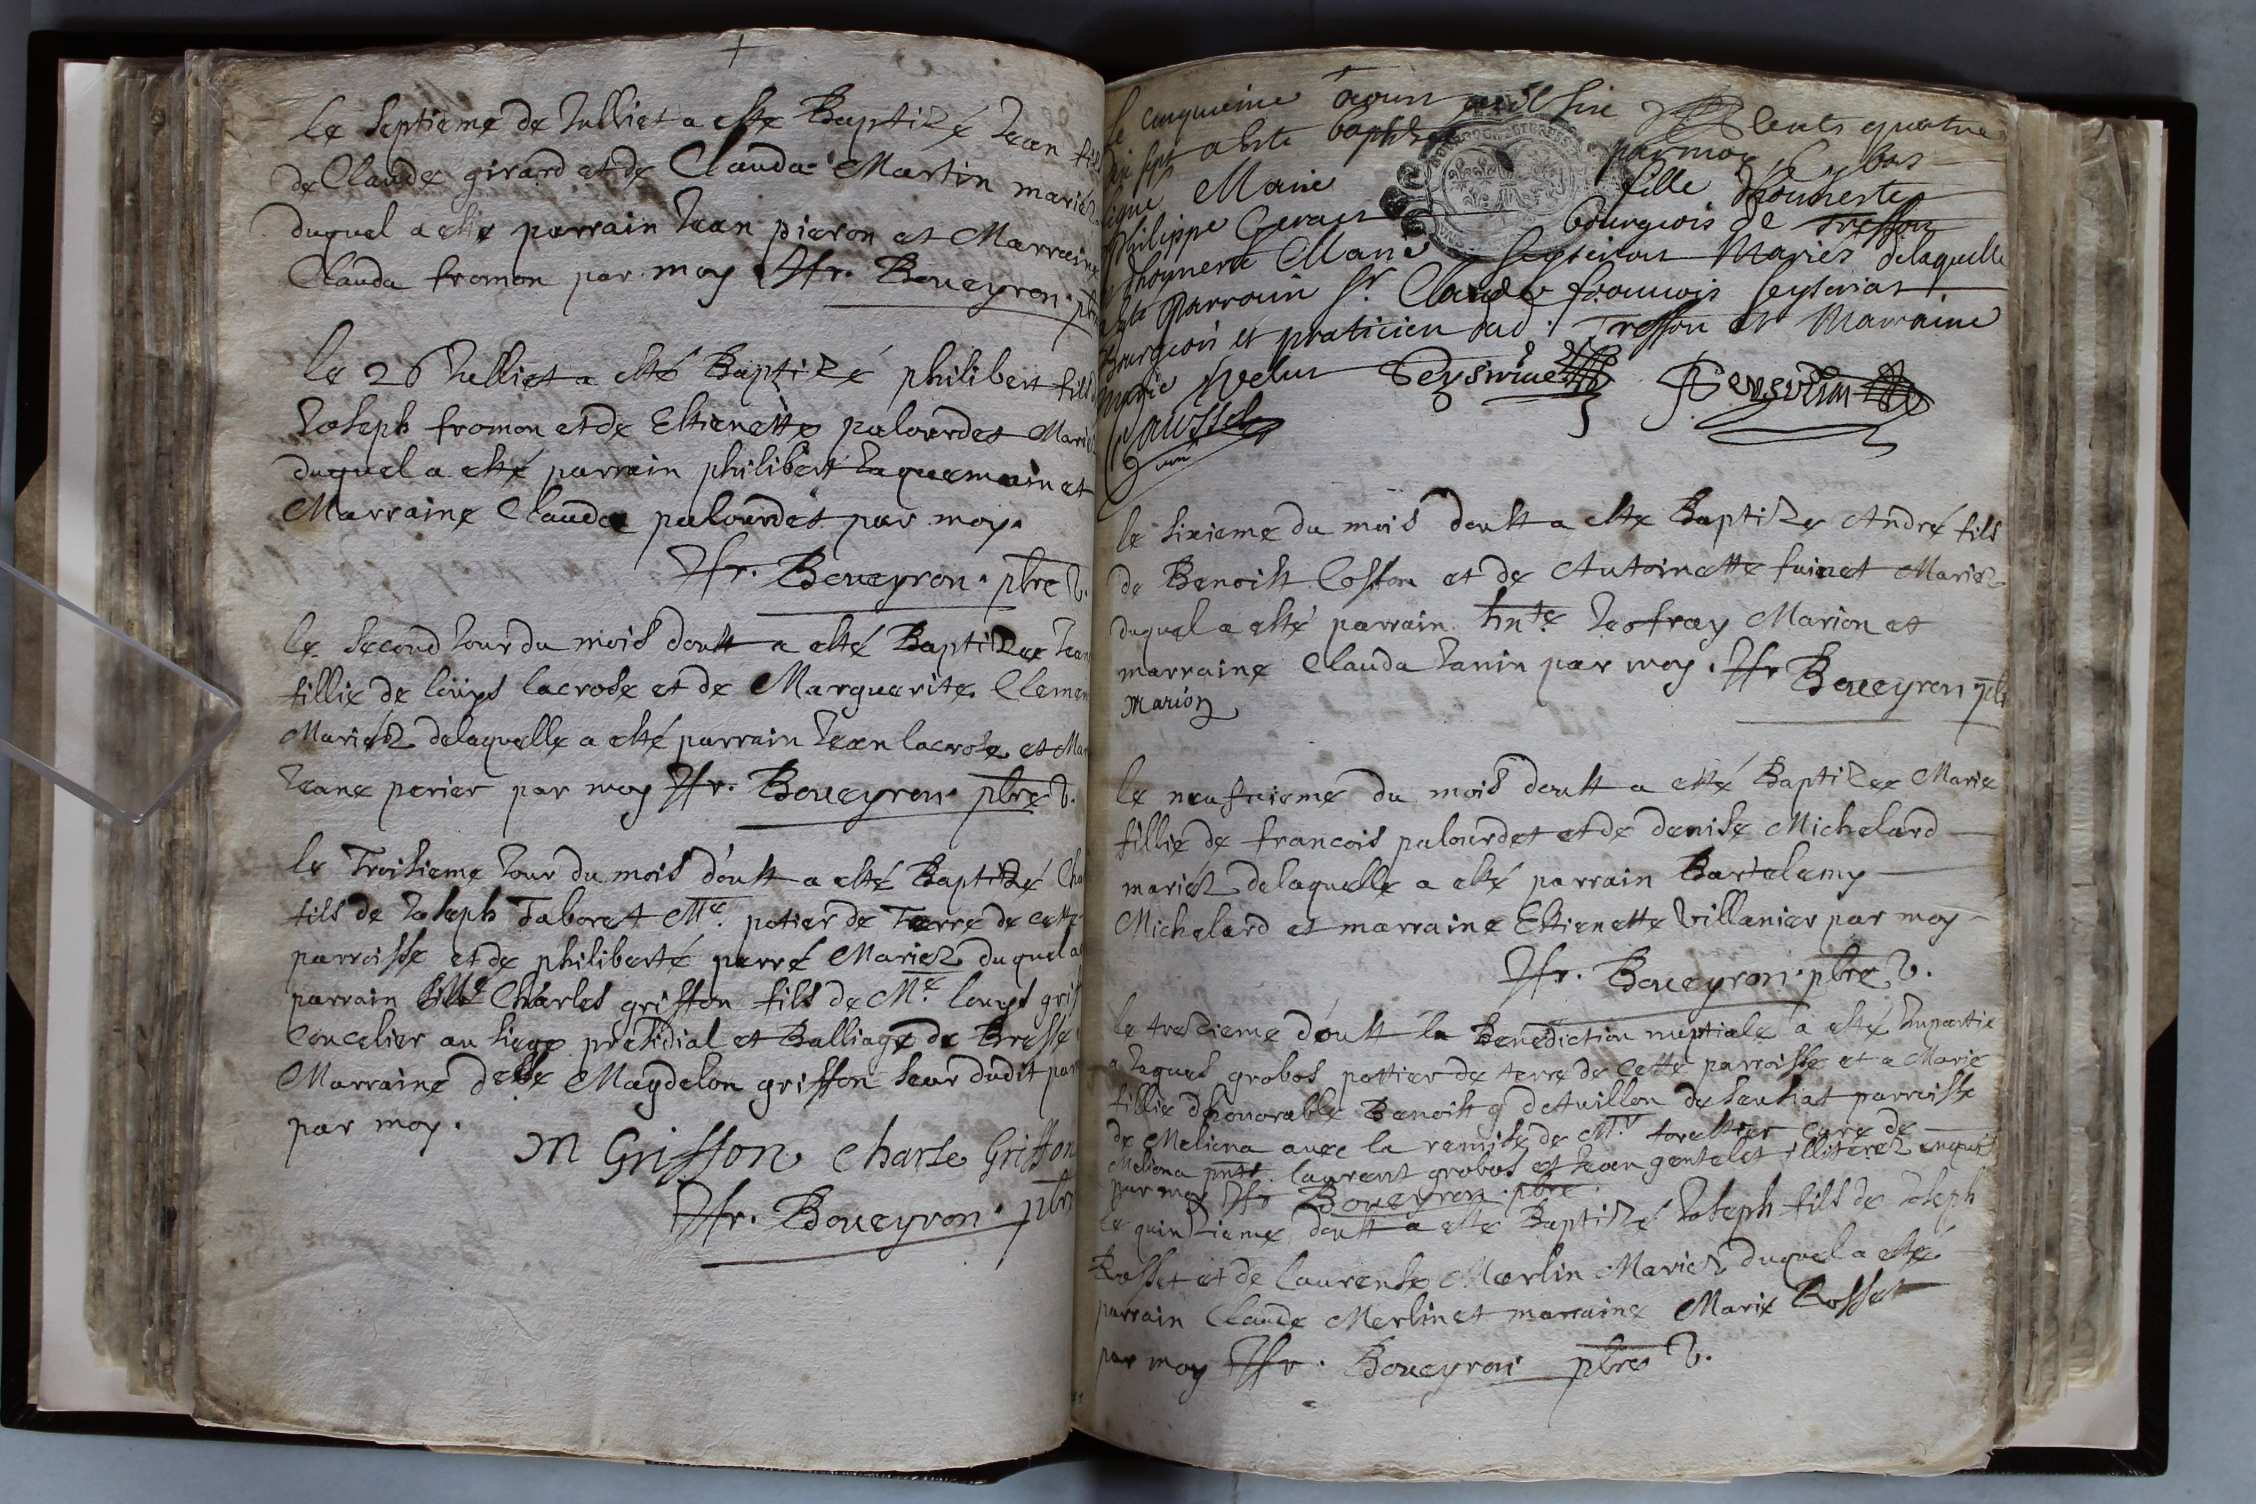 Le septieme de Julliet a esté Baptizé Jean fils
de Claude girard et de Clauda Martin mariez
duquel a esté parrain Jean pieron et Marraine
Clauda fromon par moy Jfr. Boueyron. pbre
le 26 Julliet a esté Baptizé philibert fils d
Joseph fromon et de Estienette palourdet Mariez
duquel a esté parrain philibert Jaquemain et
Marraine Clauda palourdet par moy.
Jfr. Boueyron. pbre V.
le second Jour du mois doust a esté Baptizée Jean
fillie de loüys lacrose et de Marguerite Clemen
Mariéz delaquelle a esté parrain Jean lacrose et Mar
Jeane perier par moy Jfr. Boueyron. pbre V.
le Troisieme Jour du mois d'oust a esté Baptizé Cha
fils de Joseph Taboret Me. potier de Terre de cette
parroisse et de philiberte perré Mariez duquel a
parrain Charles griffon fils de Me. louys grif
Concelier au siege presidial et Balliage de Bresse
Marraine delle Magdelon griffon seur dudit par
par moy.
M Griffon Charle Griffon
Jfr. Boueyron. pbr
Le cinquieme Jour
dix sept a este baptizé par moy
Marie fille d'honneste
philippe bourgeois de Treffon
d'honneste Marie Mariés delaquelle
parrain Sr. Claude francois
Bourgeois et praticien dud. Treffon et Marraine
Marie
le sixieme du mois doust a esté Baptize André fils
de Benoist Cosson et de Antoinette Mariez
duquel a esté parrain hnte Jeofray Marion et
marraine Clauda Janin par moy. Jfr Boueyron. pbr
Marion
le neufuieme du mois doust a esté Baptizee Marie
fillie de francois palourdet et de denise Michelard
mariez delaquelle a esté parrain Bartelemy
Michelard et marraine Estienette Villanier par moy
Jfr. Boueyron. pbre V.
le tresieme d'oust la Benediction nuptiale a esté Impartie
a Jaques grobos pottier de terre de Cette parroisse et a Marie
fillie dhonorable Benoist parroisse
de Meliona avec la remise de Mr. Curé de
Meliona pnts. laurent grobos et Jean gentelet illiterez enquis
par moy Jfr Boueyron. pbre.
le quinzieme doust a esté Baptizé Joseph fils de Joseph
Rosset et de laurense Merlin Mariez duquel a esté
parrain Claude Merlin et marraine Marie Rosset
par moy Jfr. Boueyron pbre V.